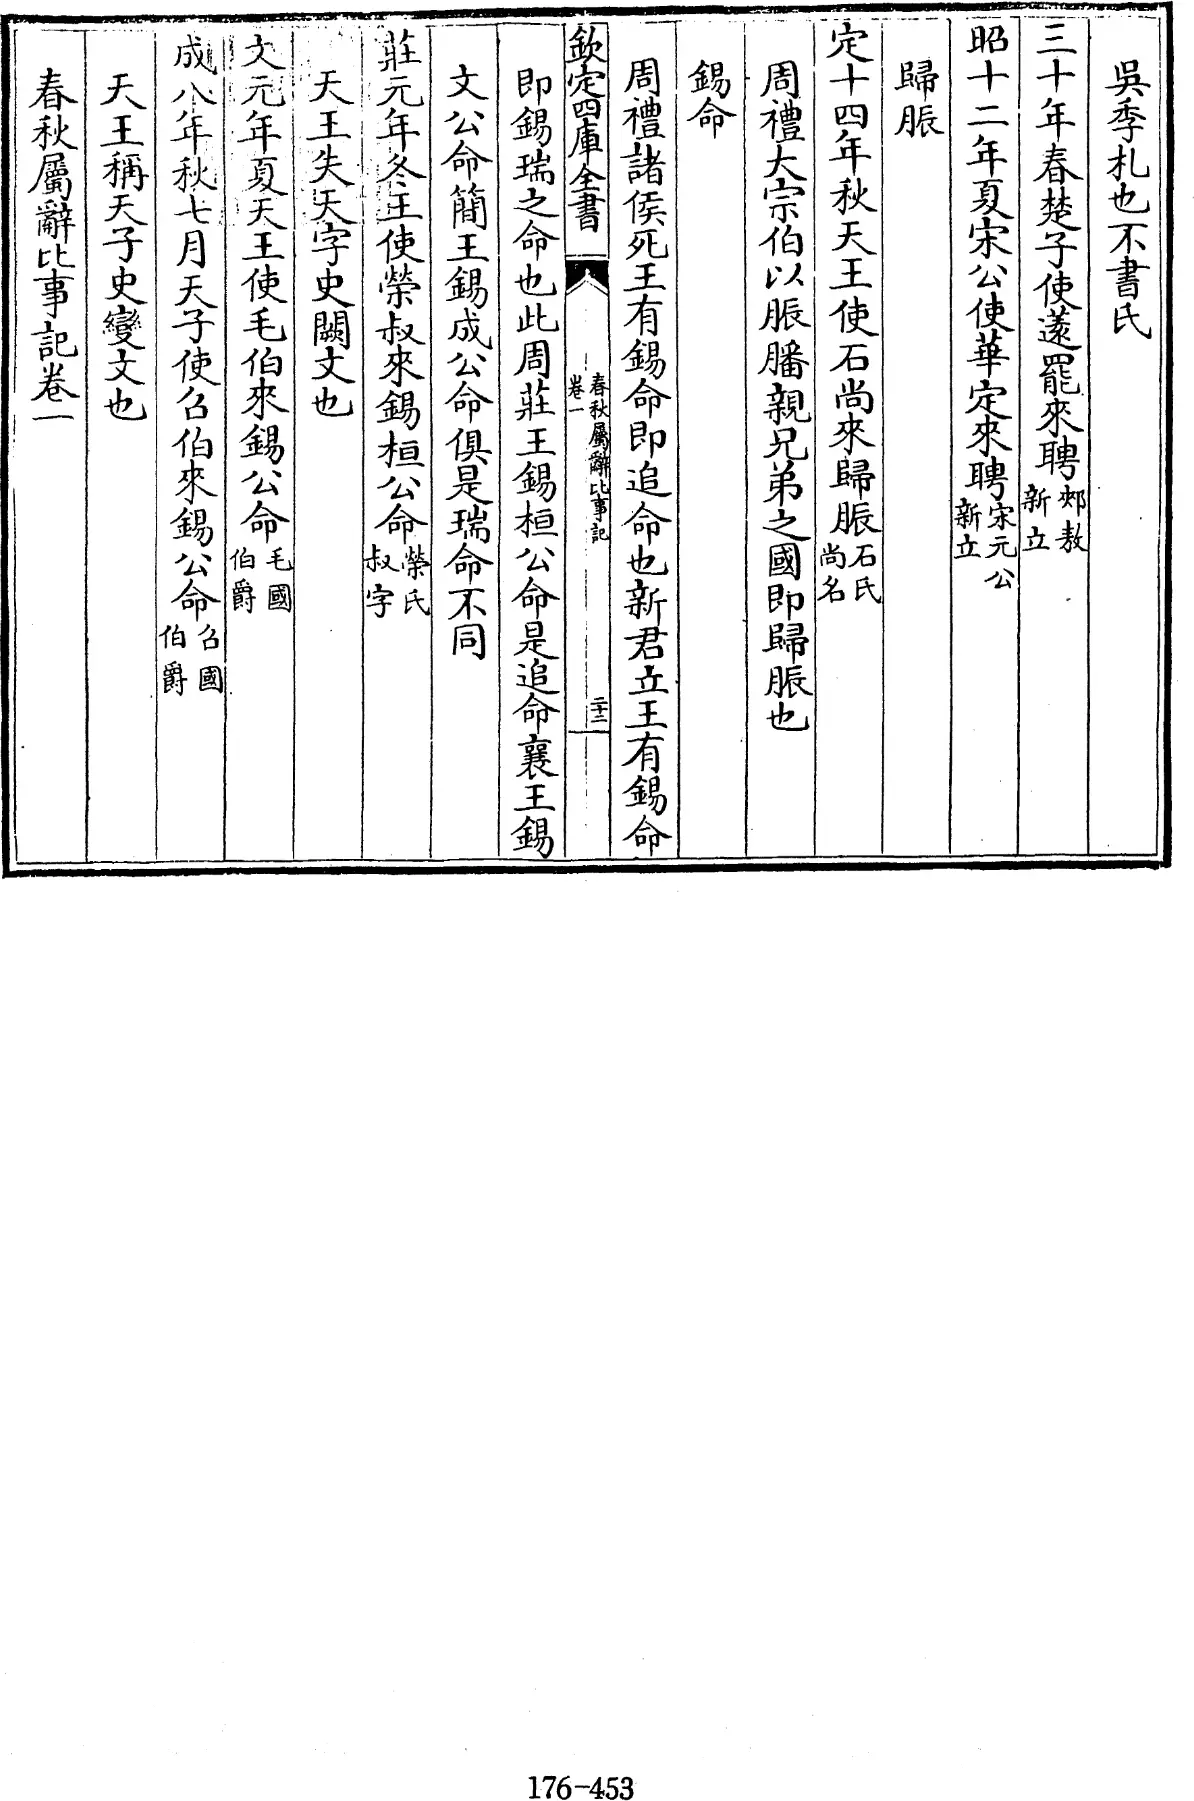 吳季札也不書氏
三十年春楚子使薳罷來聘郟敖新立
昭十二年夏宋公使華定來聘宋元公新立
歸脤
定十四年秋天王使石尚來歸脤石氏尚名
周禮大宗伯以脤膰親兄弟之國即歸脤也
錫命
周禮諸侯死王有錫命即追命也新君立王有錫命
欽定四庫全書
春秋屬辭比事記
卷一
二十二
即錫瑞之命也此周莊王錫桓公命是追命襄王錫
文公命簡王錫成公命俱是瑞命不同
莊元年冬王使榮叔來錫桓公命榮氏叔字
天王失天字史闕文也
文元年夏天王使毛伯來錫公命毛國伯爵
成八年秋七月天子使召伯來錫公命召國伯爵
天王稱天子史變文也
春秋屬辭比事記卷一
176-453